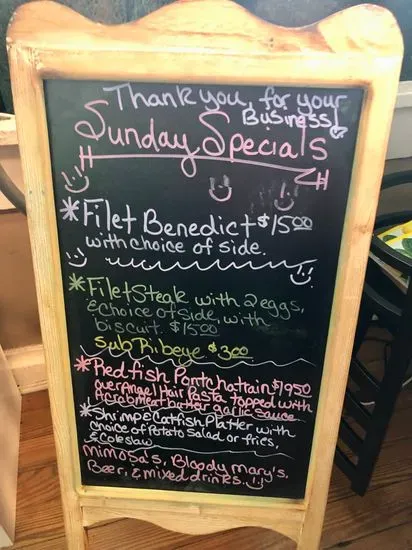 Thank you, for your
Business!
Sunday Specials
*Filet Benedict $15.00
with choice of side.
*Filet Steak with 2 eggs,
& choice of side, with
biscuit. $15.00
sub Ribeye $3.00
*Redfish Pontchatrain $19.50
over Angel Hair Pasta topped with
a crabmeat butter garlic sauce
*Shrimp & Catfish Platter with
choice of Potato Salad or fries,
& Coleslaw
Mimosa's, Bloody mary's.
Beer, & mixed drinks.